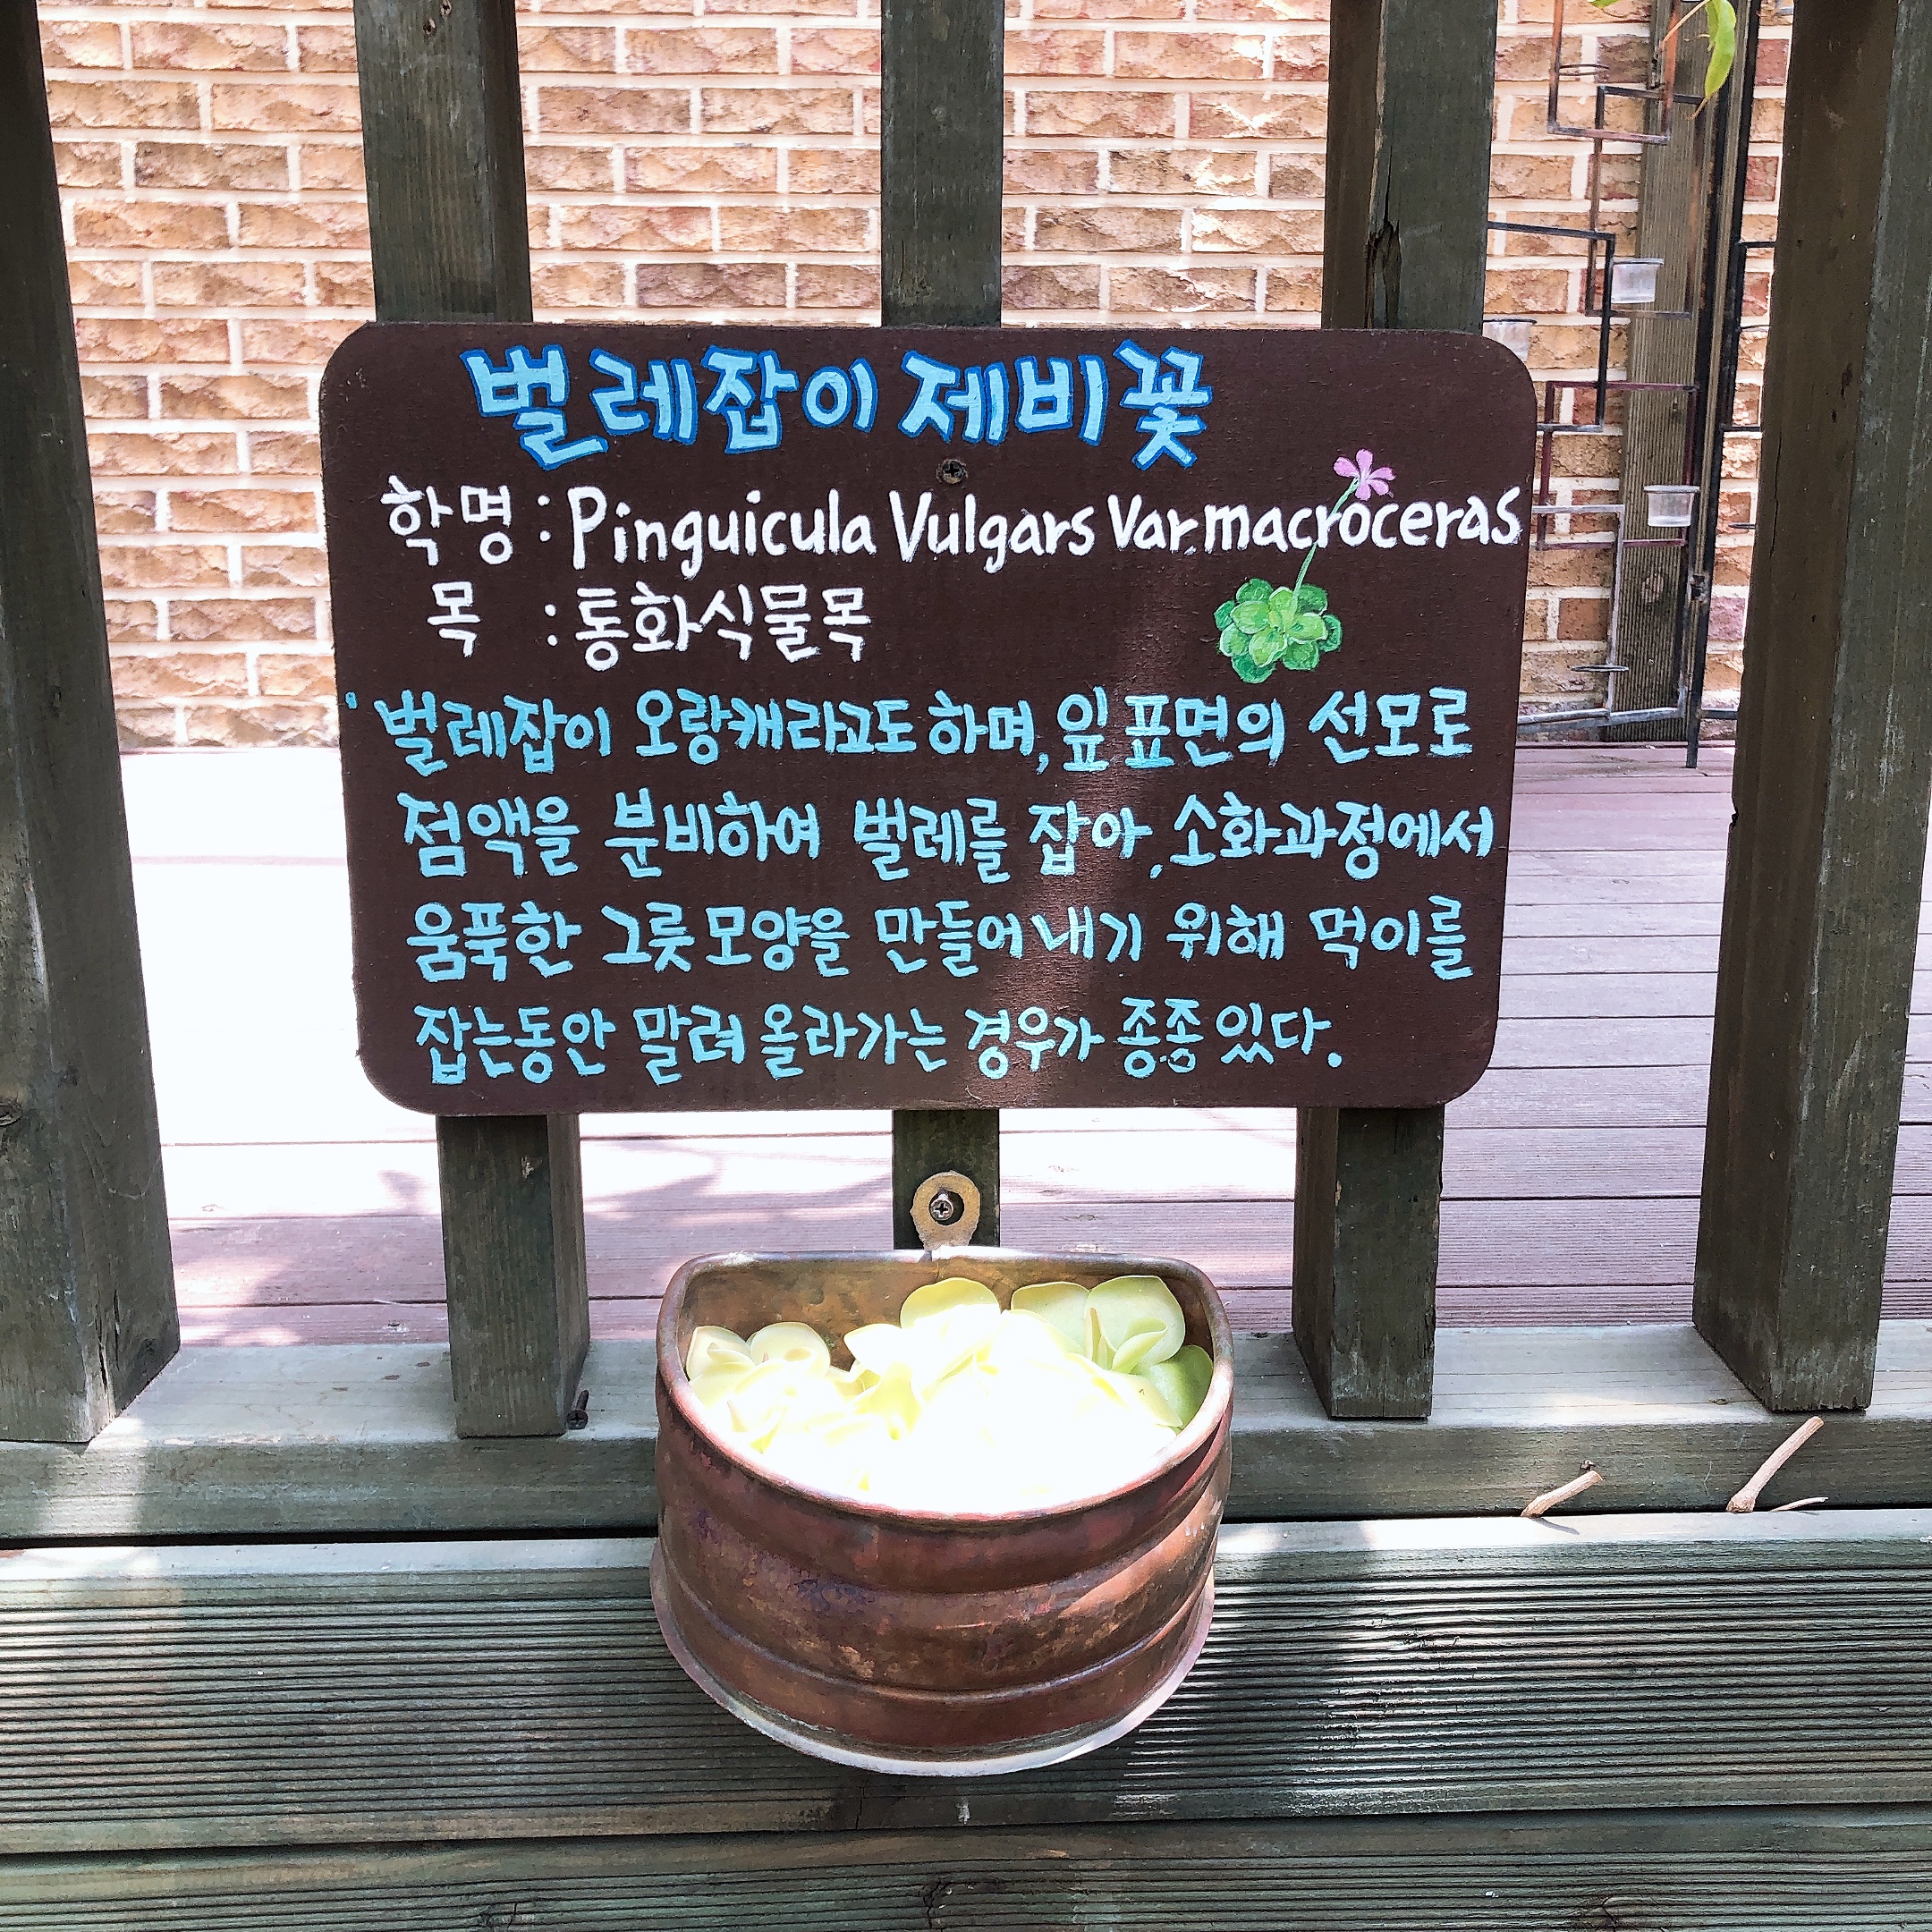 벌레잡이 제비꽃
학명 : Pinguicula Vulgars Var.macroceras
목 : 통화식물목
벌레잡이 오랑캐라고도 하며, 잎 표면의 선모로
점액을 분비하여 벌레를 잡아, 소화과정에서
움푹한 그릇모양을 만들어내기 위해 먹이를
잡는동안 말려 올라가는 경우가 종종 있다.